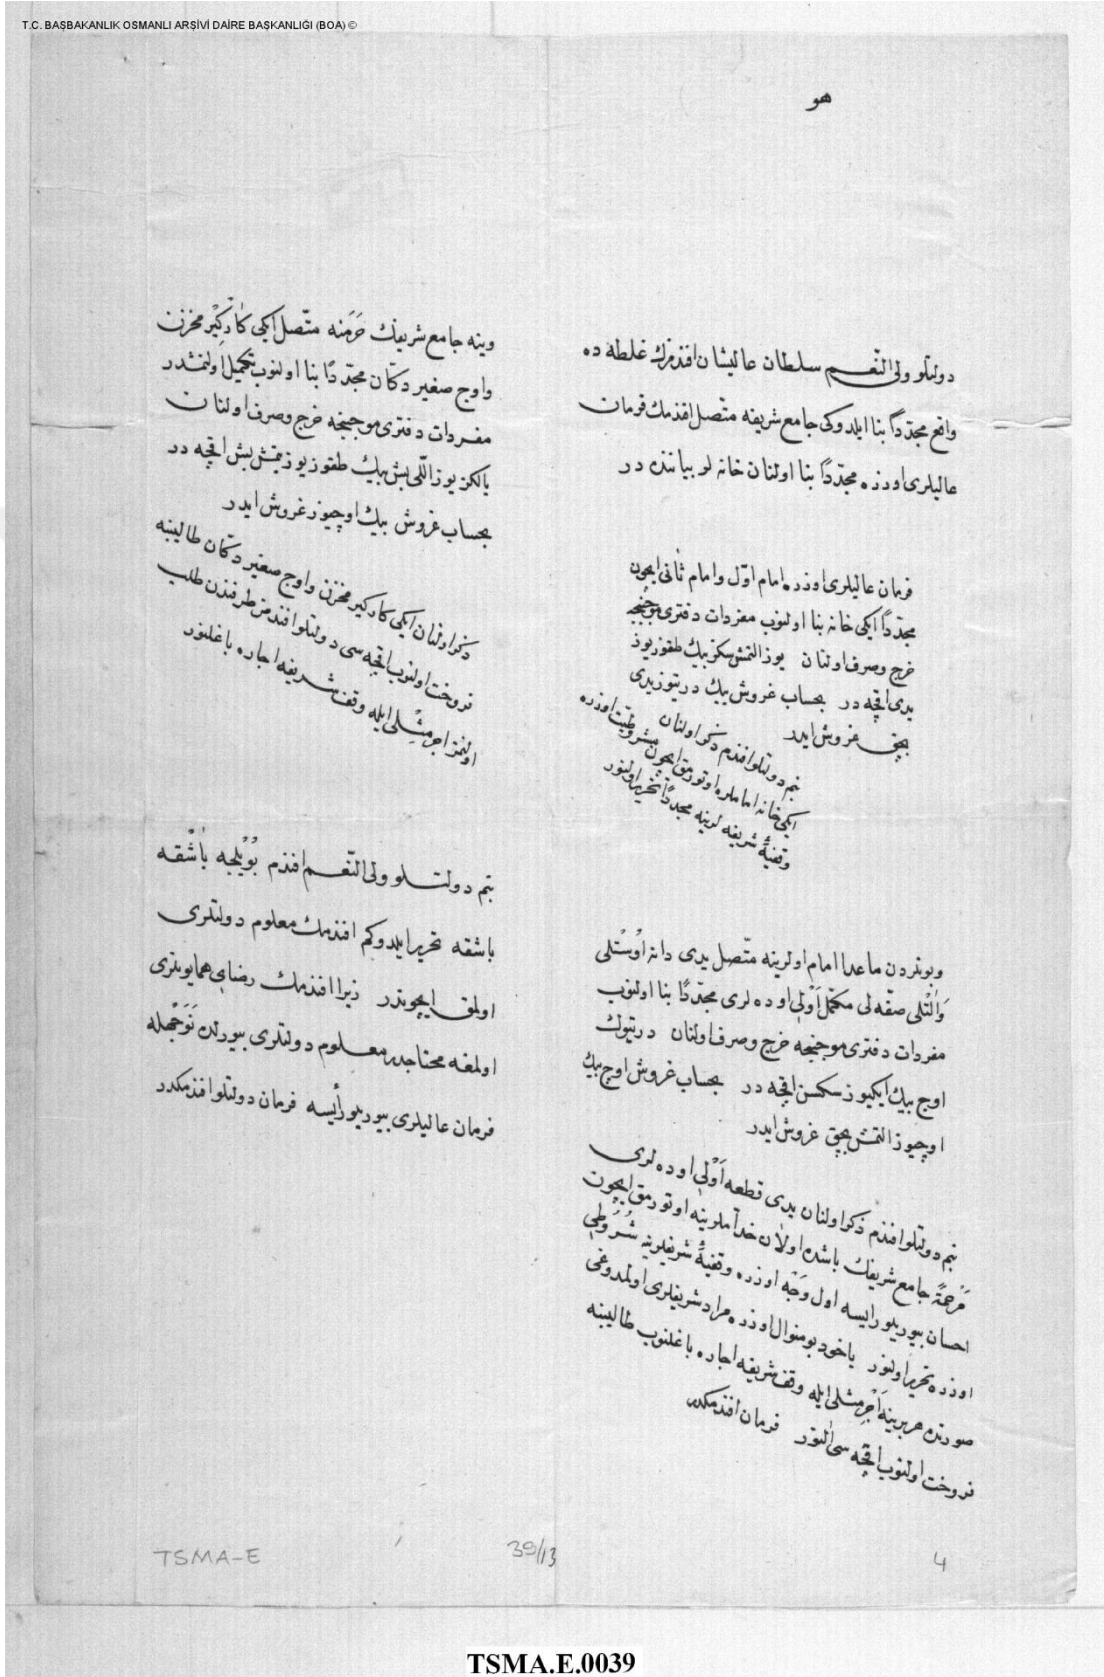 T.C. BAŞBAKANLIK OSMANLI ARŞİVİ DAİRE BAŞKANLIĞI (BOA) ©
هو
دولتلو ولی النّعم سلطان عالیشان افندمزك غلطه ده
واقع مجدّداً بنا ایلدوکی جامع شریفه متّصل افندمك فرمان
عالیلری اوزره مجدّداً بنا اولنان خانه لر بیاننده در
فرمان عالیلری اوزره امام اوّل و امام ثانی ایچون
مجدّداً ایکی خانه بنا اولنوب مفردات دفتری موجبنجه
خرج و صرف اولنان یوز التمش سکز بیك طقوز یوز
یدی اقچه در بحساب غروش بیك درتیوز یدی
بچق غروش ایدر
بنم دولتلو افندم ذکر اولنان
ایکی خانه اماملره اوتورمق ایچون مشروطیّت اوزره
وقفیّهٔ شریفه لرینه مجدداً تحریر اولنور
و بونردن ماعدا امام اولرینه متّصل یدی دانه اوستلی
والتلی صفّه لی مکمّل اولی اوده لری مجدّداً بنا اولنوب
مفردات دفتری موجبنجه خرج و صرف اولنان درتیوك
اوچ بیك ایکیوز سکسن اقچه در بحساب غروش اوچ بیك
اوچیوز التمش بچق غروش ایدر
بنم دولتلو افندم ذکر اولنان یدی قطعه اولی اوده لری
مرحمةً جامع شریفك باشنده اولان خدّاملرینه اوتورمق ایچون
احسان بیوریلورایسه اول وجه اوزره وقفیّهٔ شریفلرینه شروطی
اوزره تحریر اولنور یاخود بو منوال اوزره مراد شریفلری اولمدوغی
صورتده هربرینه اجر مثلی ایله وقف شریفه اجاره باغلنوب طالبینه
فروخت اولنوب اقچه سی النور فرمان افندمکدر
وینه جامع شریفك حرمنه متّصل ایکی کارکیر مخزن
واوج صغیر دکّان مجدّداً بنا اولنوب تکمیل اولنمشدر
مفردات دفتری موجبنجه خرج و صرف اولنان
یالکز یوز اللی بش بیك طقوز یوز یتمش بش اقچه در
بحساب غروش بیك اوچیوز غروش ایدر
ذکر اولنان ایکی کارکیر مخزن و اوج صغیر دکّان طالبینه
فروخت اولنوب اقچه سی دولتلو افندمز طرفندن طلب
اولنمز اجر مثلی ایله وقف شریفه اجاره باغلنور
بنم دولتلو ولی النّعم افندم بویلجه باشقه
باشقه تحریر ایلدوکم افندمك معلوم دولتلری
اولمق ایچوندر زیرا افندمك رضای همایونلری
اولمغه محتاجدر معلوم دولتلری بیورلدقده نوجهله
فرمان عالیلری بیوریلورایسه فرمان دولتلو افندمکدر
TSMA-E
39/13
4
TSMA.E.0039